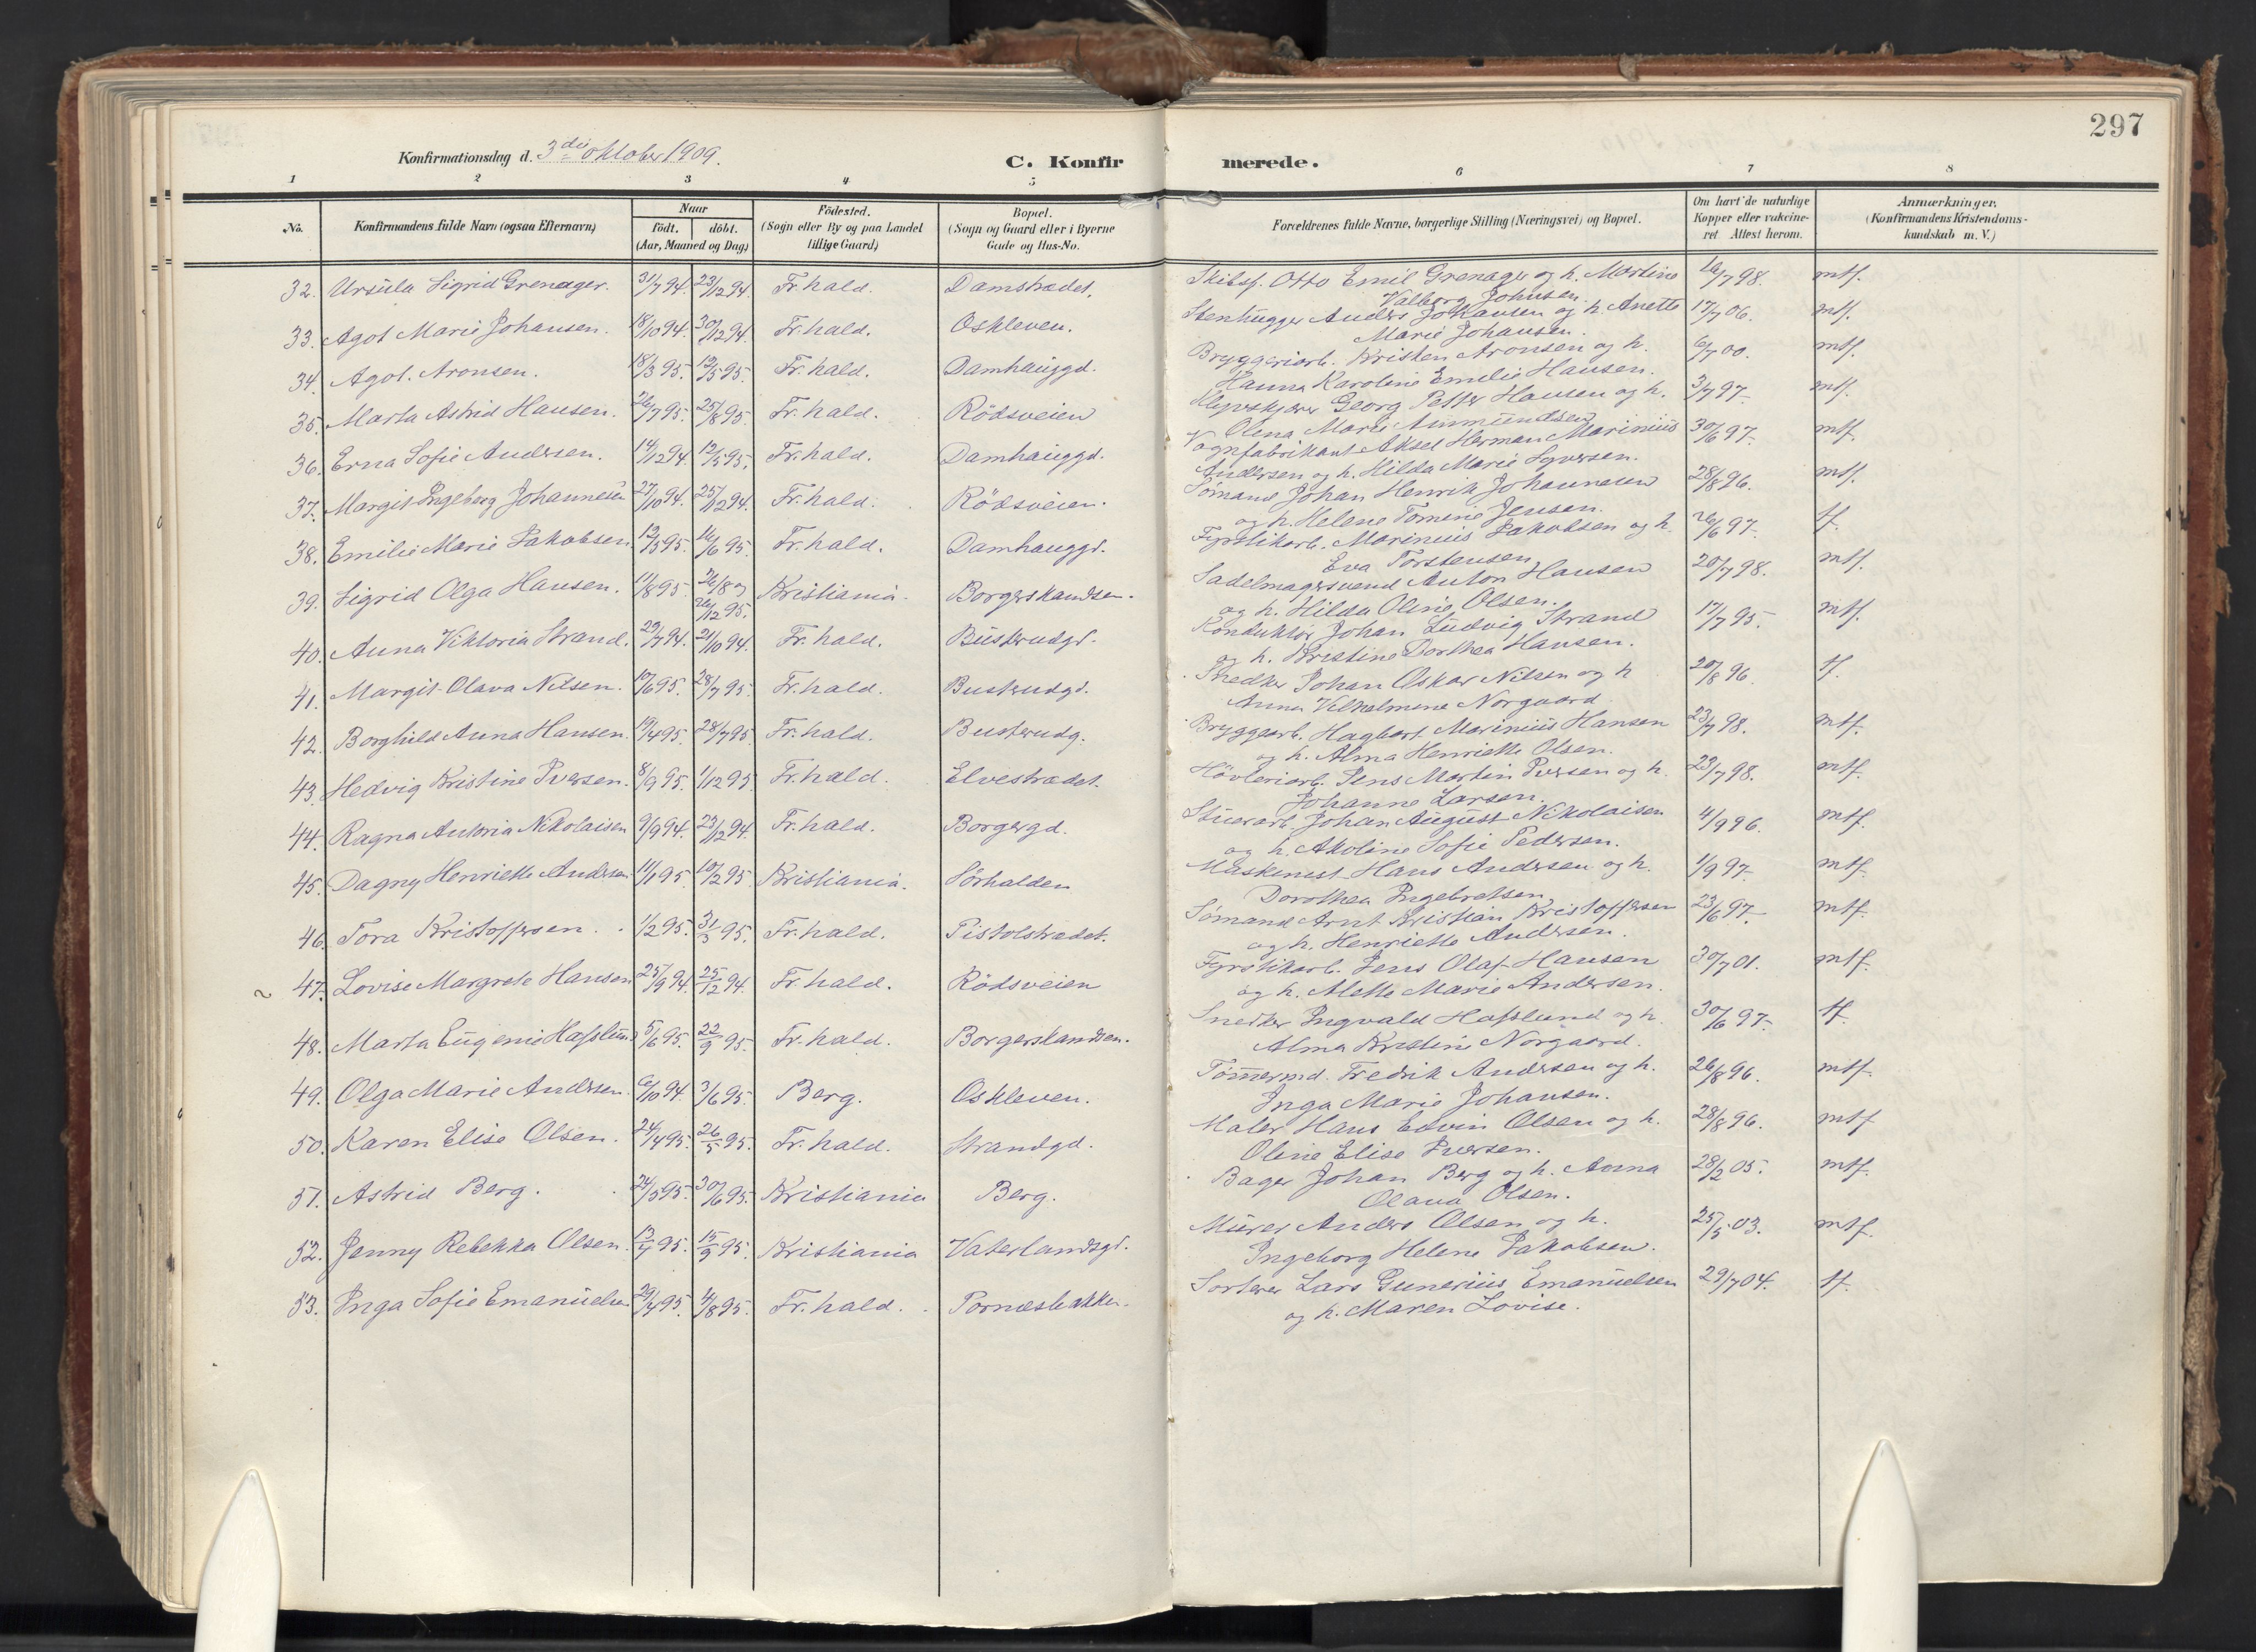 297
Konfirmationsdag d. 3die oktober 1909.
C. Konfirmerede.
1 2 3 4 5 6 7 8
No.
Konfirmandens fulde Navn (ogsaa Efternavn)
Naar
Födt. döbt.
(Aar, Maaned og Dag)
Födested.
(Sogn eller By og paa Landet
tillige Gaard)
Bopæl.
(Sogn og Gaard eller i Byerne
Gade og Hus-No.
Forældrenes fulde Navne, borgerlige Stilling (Næringsvei) og Bopæl.
Om havt de naturlige
Kopper eller vakcine-
ret. Attest herom.
Anmærkninger.
(Konfirmandens Kristendoms-
kundskab m. V.)
32. Ursula Sigrid Grenager. 31/7 94. 23/12 94. Fr.hald. Damstrædet. Skibsf. Otto Emil Grenager og h. Martine 16/7 98. mtf.
Valborg Johnsen.
33. Agot Marie Johansen. 18/10 94. 30/12 94. Fr.hald. Oskleven. Stenhugger Anders Johansen og h. Anette 17/7 06. mtf.
Marie Johansen.
34. Agot. Aronsen. 18/3 95. 12/5 95. Fr.hald. Damhauggd. Bryggeriarb. Kristen Aronsen og h. 6/7 00. mtf.
Hanna Karoline Emilie Hansen.
35. Marta Astrid Hansen. 26/7 95. 25/8 95. Fr.hald. Rödsveien Georg Petter Hansen og h. 3/7 97. mtf.
Olena Marie Ammundsen
36. Erna Sofie Andersen. 14/12 94. 12/5 95. Fr.hald. Damhauggd. Vognfabrikant Aksel Herman Marinius 30/6 97. mtf.
Andersen og h. Hilda Marie Syversen.
37. Margit Ingeborg Johannesen 27/10 94. 25/12 94. Fr.hald. Rödsveien. Sömand Johan Henrik Johannesen 28/8 96. mtf.
og h. Helene Tomine Jensen.
38. Emilie Marie Jakobsen. 12/5 95. 16/6 95. Fr.hald. Damhauggd. Fyrstikarb. Marinius Jakobsen og h. 26/6 97. tf.
Eva Torstensen
39. Sigrid Olga Hansen. 11/8 95. 26/8 og Kristiania. Borgerskandsen. Sadelmagersvend Anton Hansen 20/7 98. mtf.
26/12 95.
og h. Hilda Oline Olsen.
40. Anna Viktoria Strand. 29/7 94. 21/10 94. Fr.hald. Busterudgd. Konduktör Johan Ludvig Strand 17/7 95. mtf.
og h. Kristine Dorthea Hansen.
41. Margit Olava Nilsen. 10/6 95. 28/7 95. Fr.hald. Busterudgd. Snedker Johan Oskar Nilsen og h 20/8 96. tf.
Anna Vilhelmene Norgaard
42. Borghild Anna Hansen. 19/4 95. 28/7 95 Fr.hald. Busterudg. Bryggearb. Hagbart Marinius Hansen 23/7 98. mtf.
og h. Alma Henriette Olsen.
43. Hedvig Kristine Iversen. 8/9 95. 1/12 95 Fr.hald. Elvestrædet. Hövleriarb. Jens Martin Iversen og h. 23/7 98. mtf.
Johanne Larsen.
44. Ragna Antoria Nikolaisen 9/9 94. 23/12 94. Fr.hald. Borgergd. Stuerarb. Johan August Nikolaisen 4/9 96. mtf.
og h. Akoline Sofie Pedersen.
45. Dagny Henriette Andersen 11/1 95. 10/2 95 Kristiania. Sörhalden Maskinist Hans Andersen og h. 1/9 97. mtf.
Dorothea Ingebretsen
46. Tora Kristoffersen. 1/2 95. 31/3 95. Fr.hald. Pistolstrædet. Sömand Arnt Kristian Kristoffersen 23/6 97. mtf.
og h. Henriette Andersen.
47. Lovise Margrete Hansen 25/9 94. 25/12 94. Fr.hald. Rödsveien Fyrstikarb. Jens Olaf Hansen 30/7 01. mtf.
og h. Alette Marie Andersen.
48. Marta Eugenie Hafslund 5/6 95. 22/9 95. Fr.hald. Borgerskandsen. Snedker Ingvald Hafslund og h. 30/6 97. tf.
Alma Kristine Norgaard.
49. Olga Marie Andersen. 6/10 94. 3/6 95. Berg. Oskleven. Tömmermd. Fredrik Andersen og h. 26/8 96. mtf.
Inga Marie Johansen.
50. Karen Elise Olsen. 24/4 95. 26/5 95. Fr.hald. Strandgd. Maler Hans Edvin Olsen og h. 28/8 96. mtf
Oline Elise Iversen.
51. Astrid Berg. 24/5 95. 30/6 95. Kristiania Berg. Bager Johan Berg og h. Anna 28/2 05. mtf.
Olava Olsen.
52. Jenny Rebekka Olsen. 13/4 95. 15/9 95. Kristiania Vaterlandsgd. Murer Anders Olsen og h. 25/5 03. mtf.
Ingeborg Helene Jakobsen.
53. Inga Sofie Emanuelsen 29/4 95. 4/8 95. Fr.hald. Tornæsbakken. Sorterer Lars Gunerius Emanuelsen 29/7 04. tf.
og h. Maren Lovise.